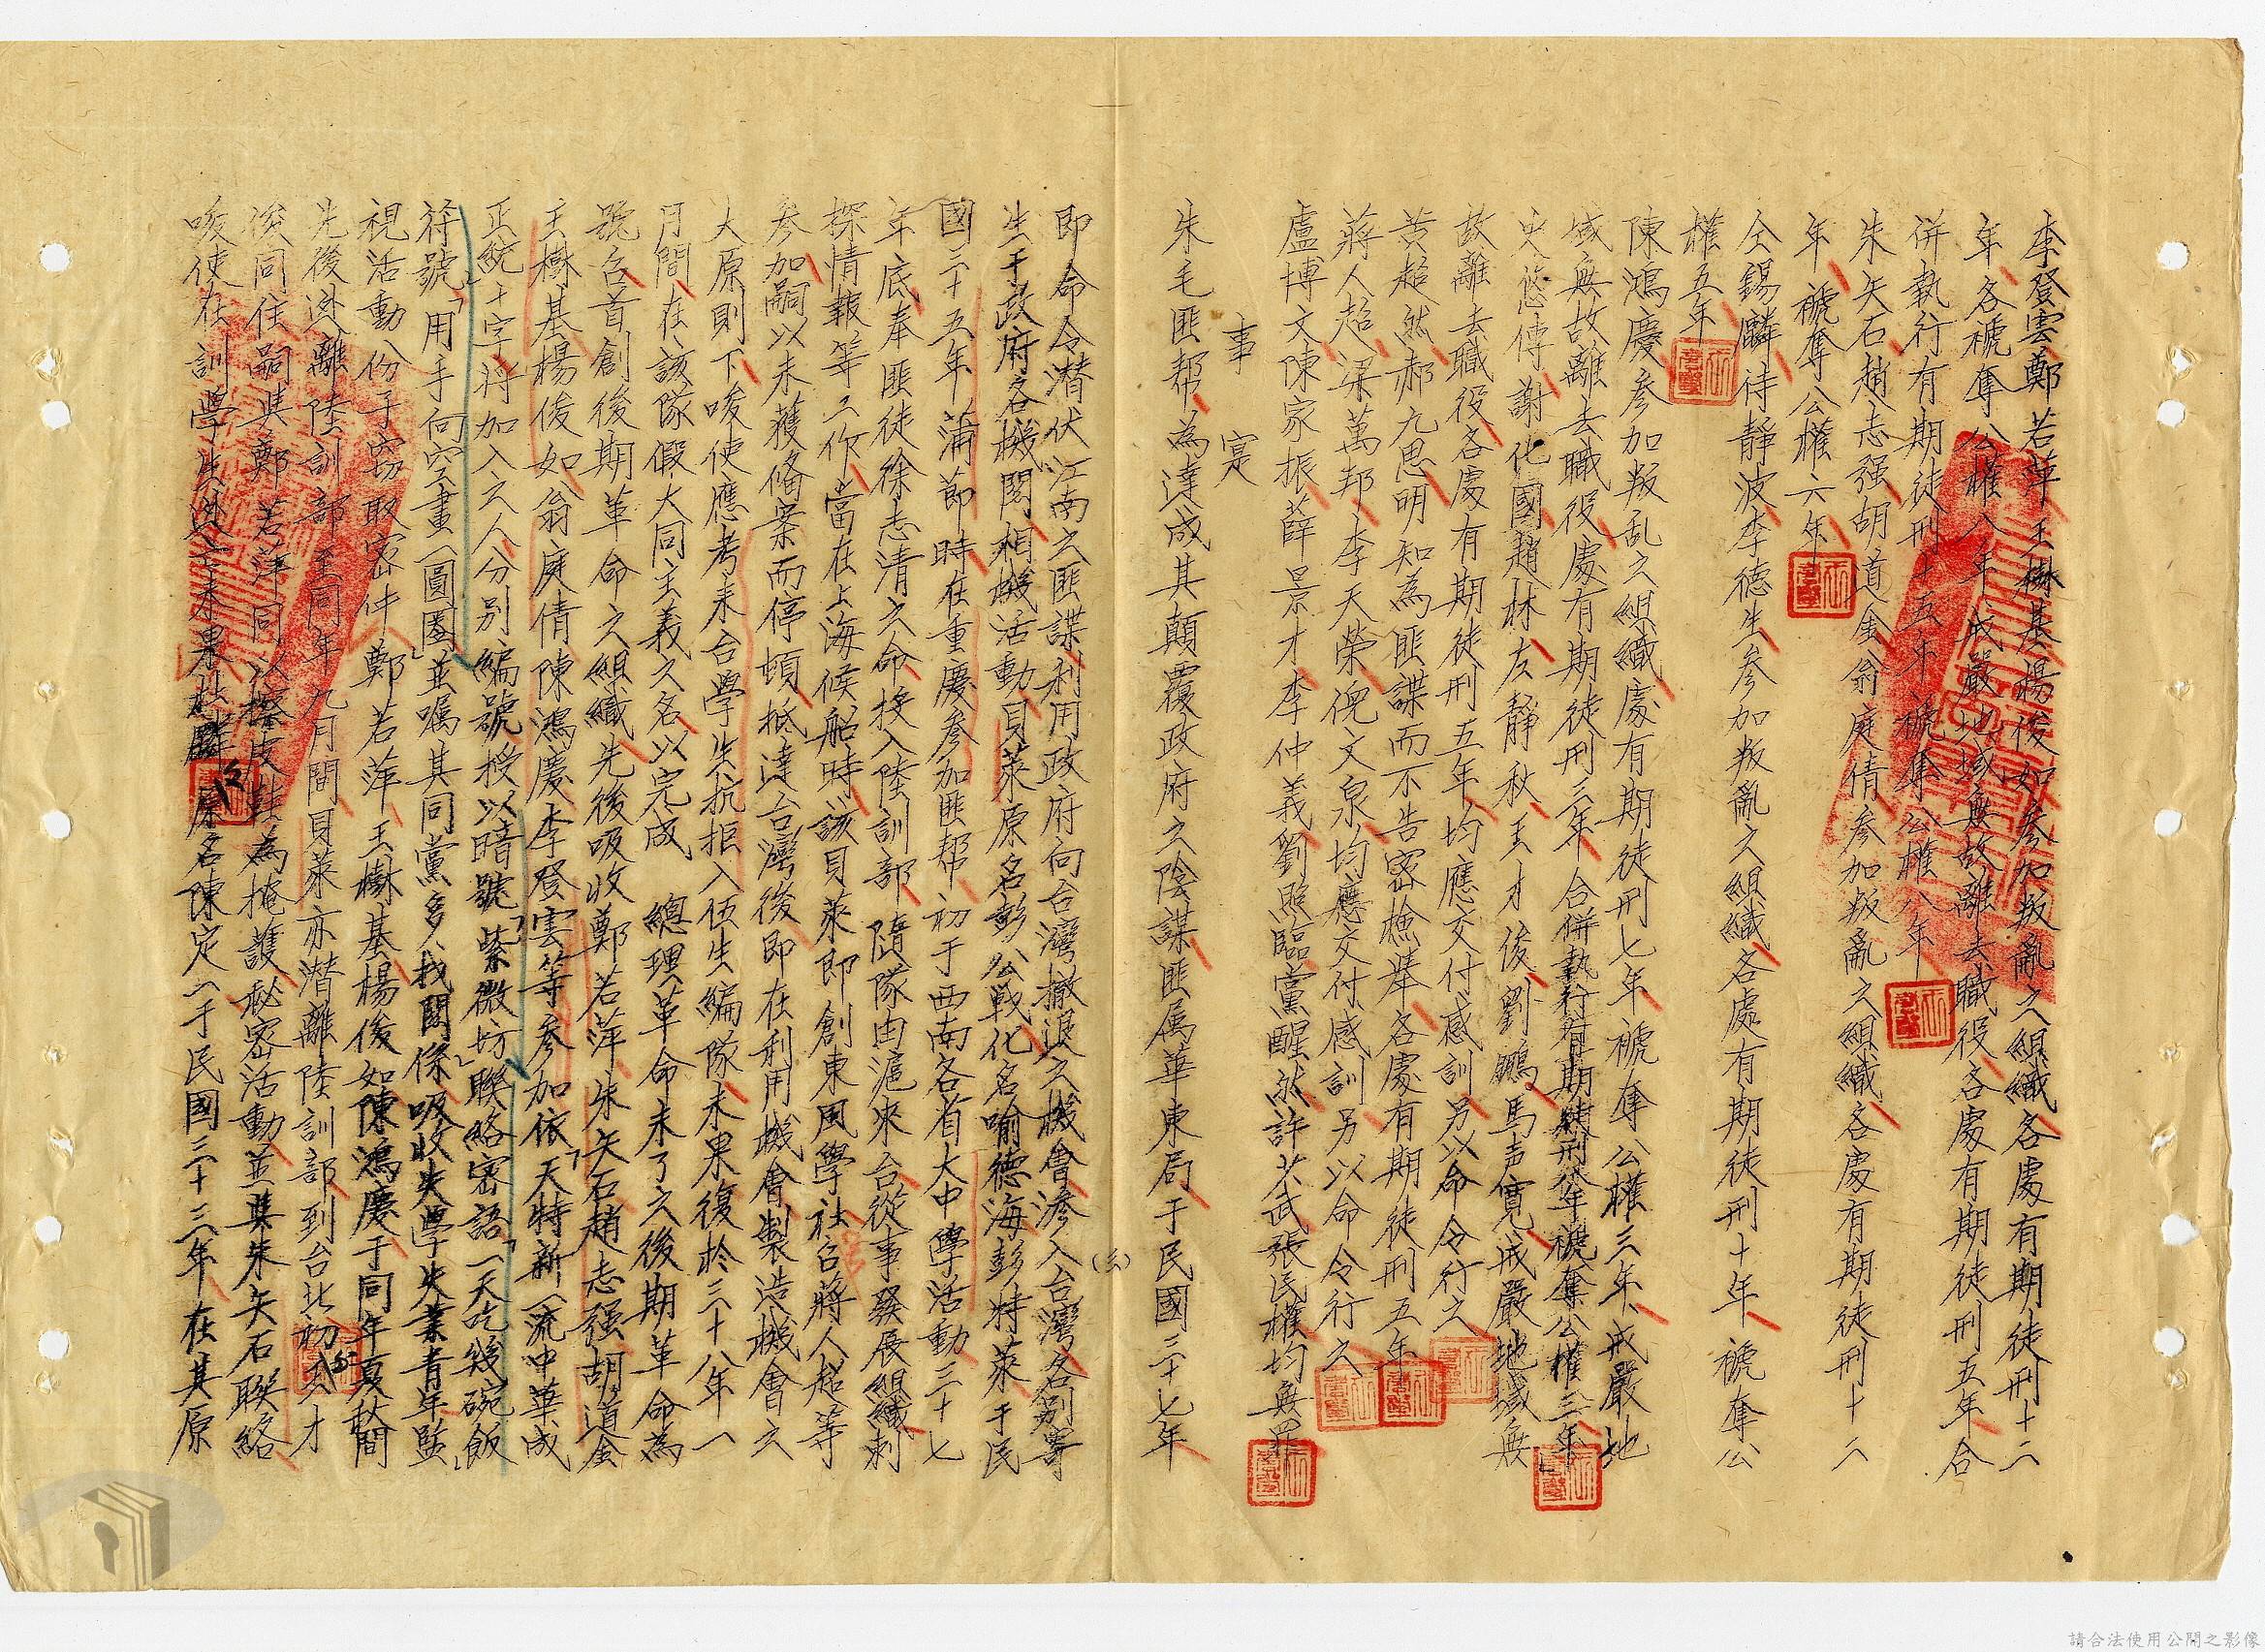 李登雲鄭若萍王樹基楊俊如參加叛亂之組織各處有期徒刑十二
年各褫奪公權八年戒嚴地域無故離去職役各處有期徒刑五年合
併執行有期徒刑十五年褫奪公權八年
朱矢石趙志强胡道金翁庭倩參加叛亂之組織各處有期徒刑十二
年褫奪公權六年
仝錫麟待靜波李德生參加叛亂之組織各處有期徒刑十年褫奪公
權五年
陳鴻慶參加叛乱之組織處有期徒刑七年褫奪公權三年戒嚴地
域無故離去職役處有期徒刑三年合併執行有期徒刑年褫奪公權三年
史悠傳謝化國趙林左靜秋王才俊劉鵬馬声寬戒嚴地域無
故離去職役各處有期徒刑五年均應交付感訓另以命令行之
黃超然郝九思明知為匪諜而不告密檢舉各處有期徒刑五年
蔣人超梁萬邦李天榮倪文泉均應交付感訓另以命令行之
盧博文陳家振薛景才李仲義劉照臨黨醒然許武張民權均無罪
事實
朱毛匪帮為達成其顛覆政府之陰謀匪屬華東局于民國三十七年
(6)
即命令潛伏江南之匪諜利用政府向台灣撤退之機會滲入台灣各別寄
生于政府各機關相機活動貝萊原名彭公戰化名喻德海彭特萊于民
國三十五年蒲節時在重慶參加匪帮初于西南各省大中學活動三十七
年底奉匪徒徐志清之命投入陸訓部隨隊由滬來台從事發展組織刺
探情報等工作當在上海候船時該貝萊即創東風學社召蔣人超等
參加嗣以未獲備案而停頓抵達台灣後即在利用機會製造機會之
大原則下唆使應考來台學生抗拒入伍生編隊未果復於三十八年一
月間在該隊假大同主義之名以完成 總理革命未了之後期革命為
號召首創後期革命之組織先後吸收鄭若萍朱矢石趙志强胡道金
王樹基楊俊如翁庭倩陳鴻慶李登雲等參加依「天特新一流中華成
正統」十字將加入之人分別編號授以暗號「紫微坊」聯絡密語「一天吃幾碗飯」
符號「用手向空畫一圓圈」並囑其同黨多找關係吸收失學失業青年監
視活動份子竊取密件鄭若萍王樹基楊俊如陳鴻慶于同年夏秋間
先後逃離陸訓部至同年九月間貝萊亦潛離陸訓部到台北初去才
後同住嗣與鄭若萍同以擦皮鞋為掩護秘密活動並與朱矢石聯絡
唆使在訓學生逃亡未果杜麟原名陳定一于民國三十三年在其原
請合法使用公開之影像